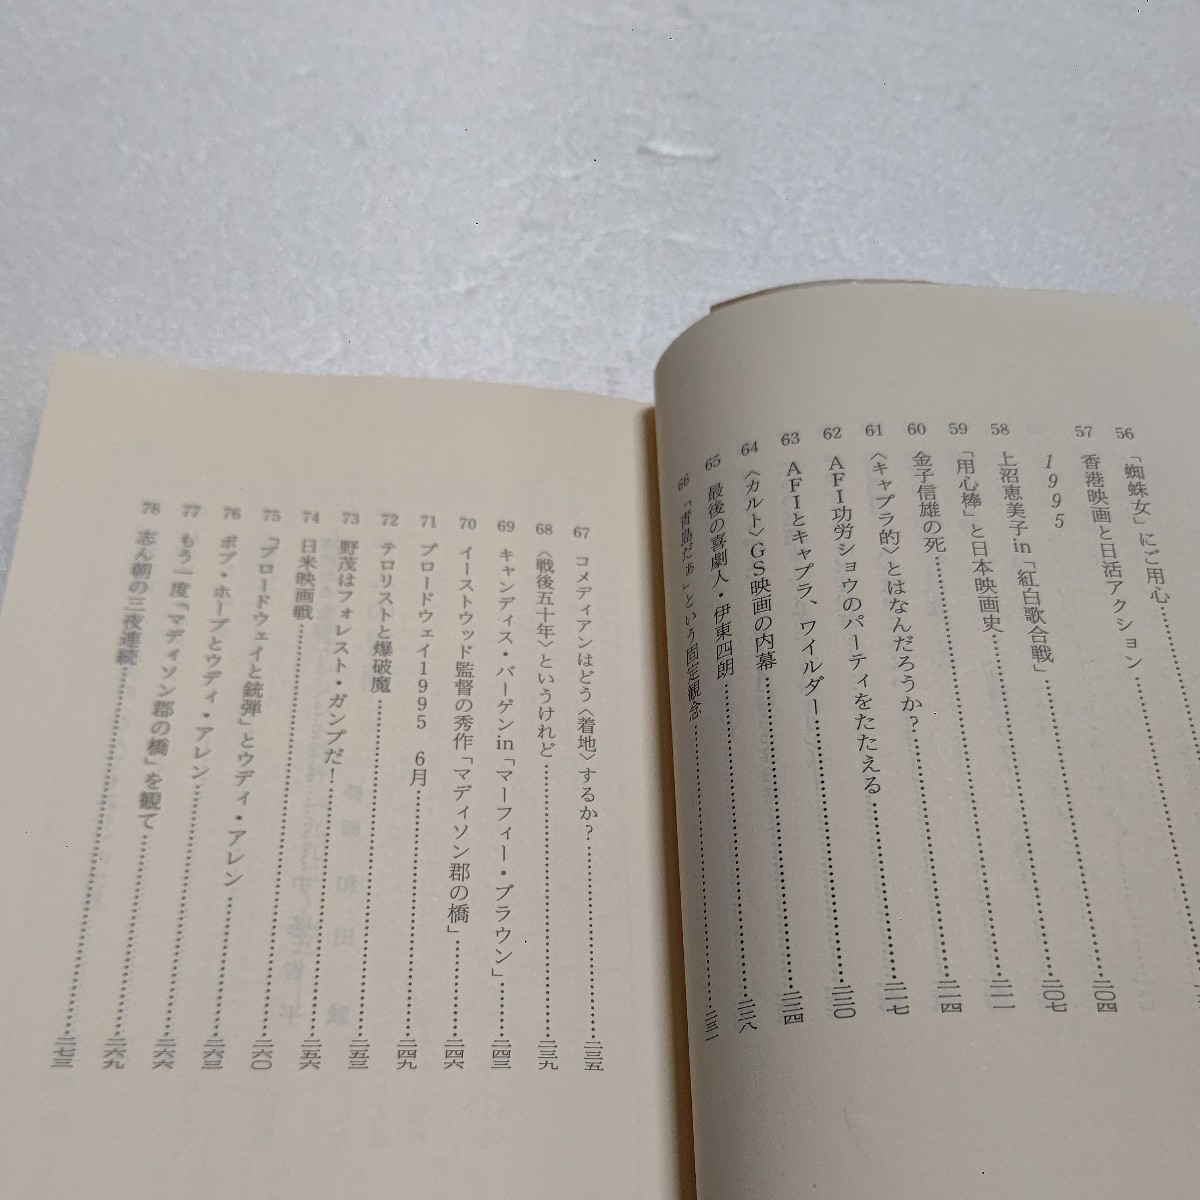 56 「蜘蛛女」にご用心
57 香港映画と日活アクション
1995
58 上沼恵美子in「紅白歌合戦」……二〇四
59 「用心棒」と日本映画史……二〇七
60 金子信雄の死……二一一
61 〈キャプラ的〉とはなんだろうか?……二一四
62 AFI功労ショウのパーティをたたえる……二一七
63 AFIとキャプラ、ワイルダー……二二〇
64 〈カルト〉GS映画の内幕……二二四
65 最後の喜劇人・伊東四朗……二二八
66 「青島だぁ」という固定観念……二三一
67 コメディアンはどう〈着地〉するか?……二三五
68 〈戦後五十年〉というけれど……二三九
69 キャンディス・バーゲンin「マーフィー・ブラウン」……二四三
70 イーストウッド監督の秀作「マディソン郡の橋」……二四六
71 ブロードウェイ1995 6月……二四九
72 テロリストと爆破魔……二五三
73 野茂はフォレスト・ガンプだ!……二五六
74 日米映画戦……二六〇
75 「ブロードウェイと銃弾」とウディ・アレン……二六三
76 ボブ・ホープとウディ・アレン……二六六
77 もう一度「マディソン郡の橋」を観て……二六九
78 志ん朝の三夜連続……二七三